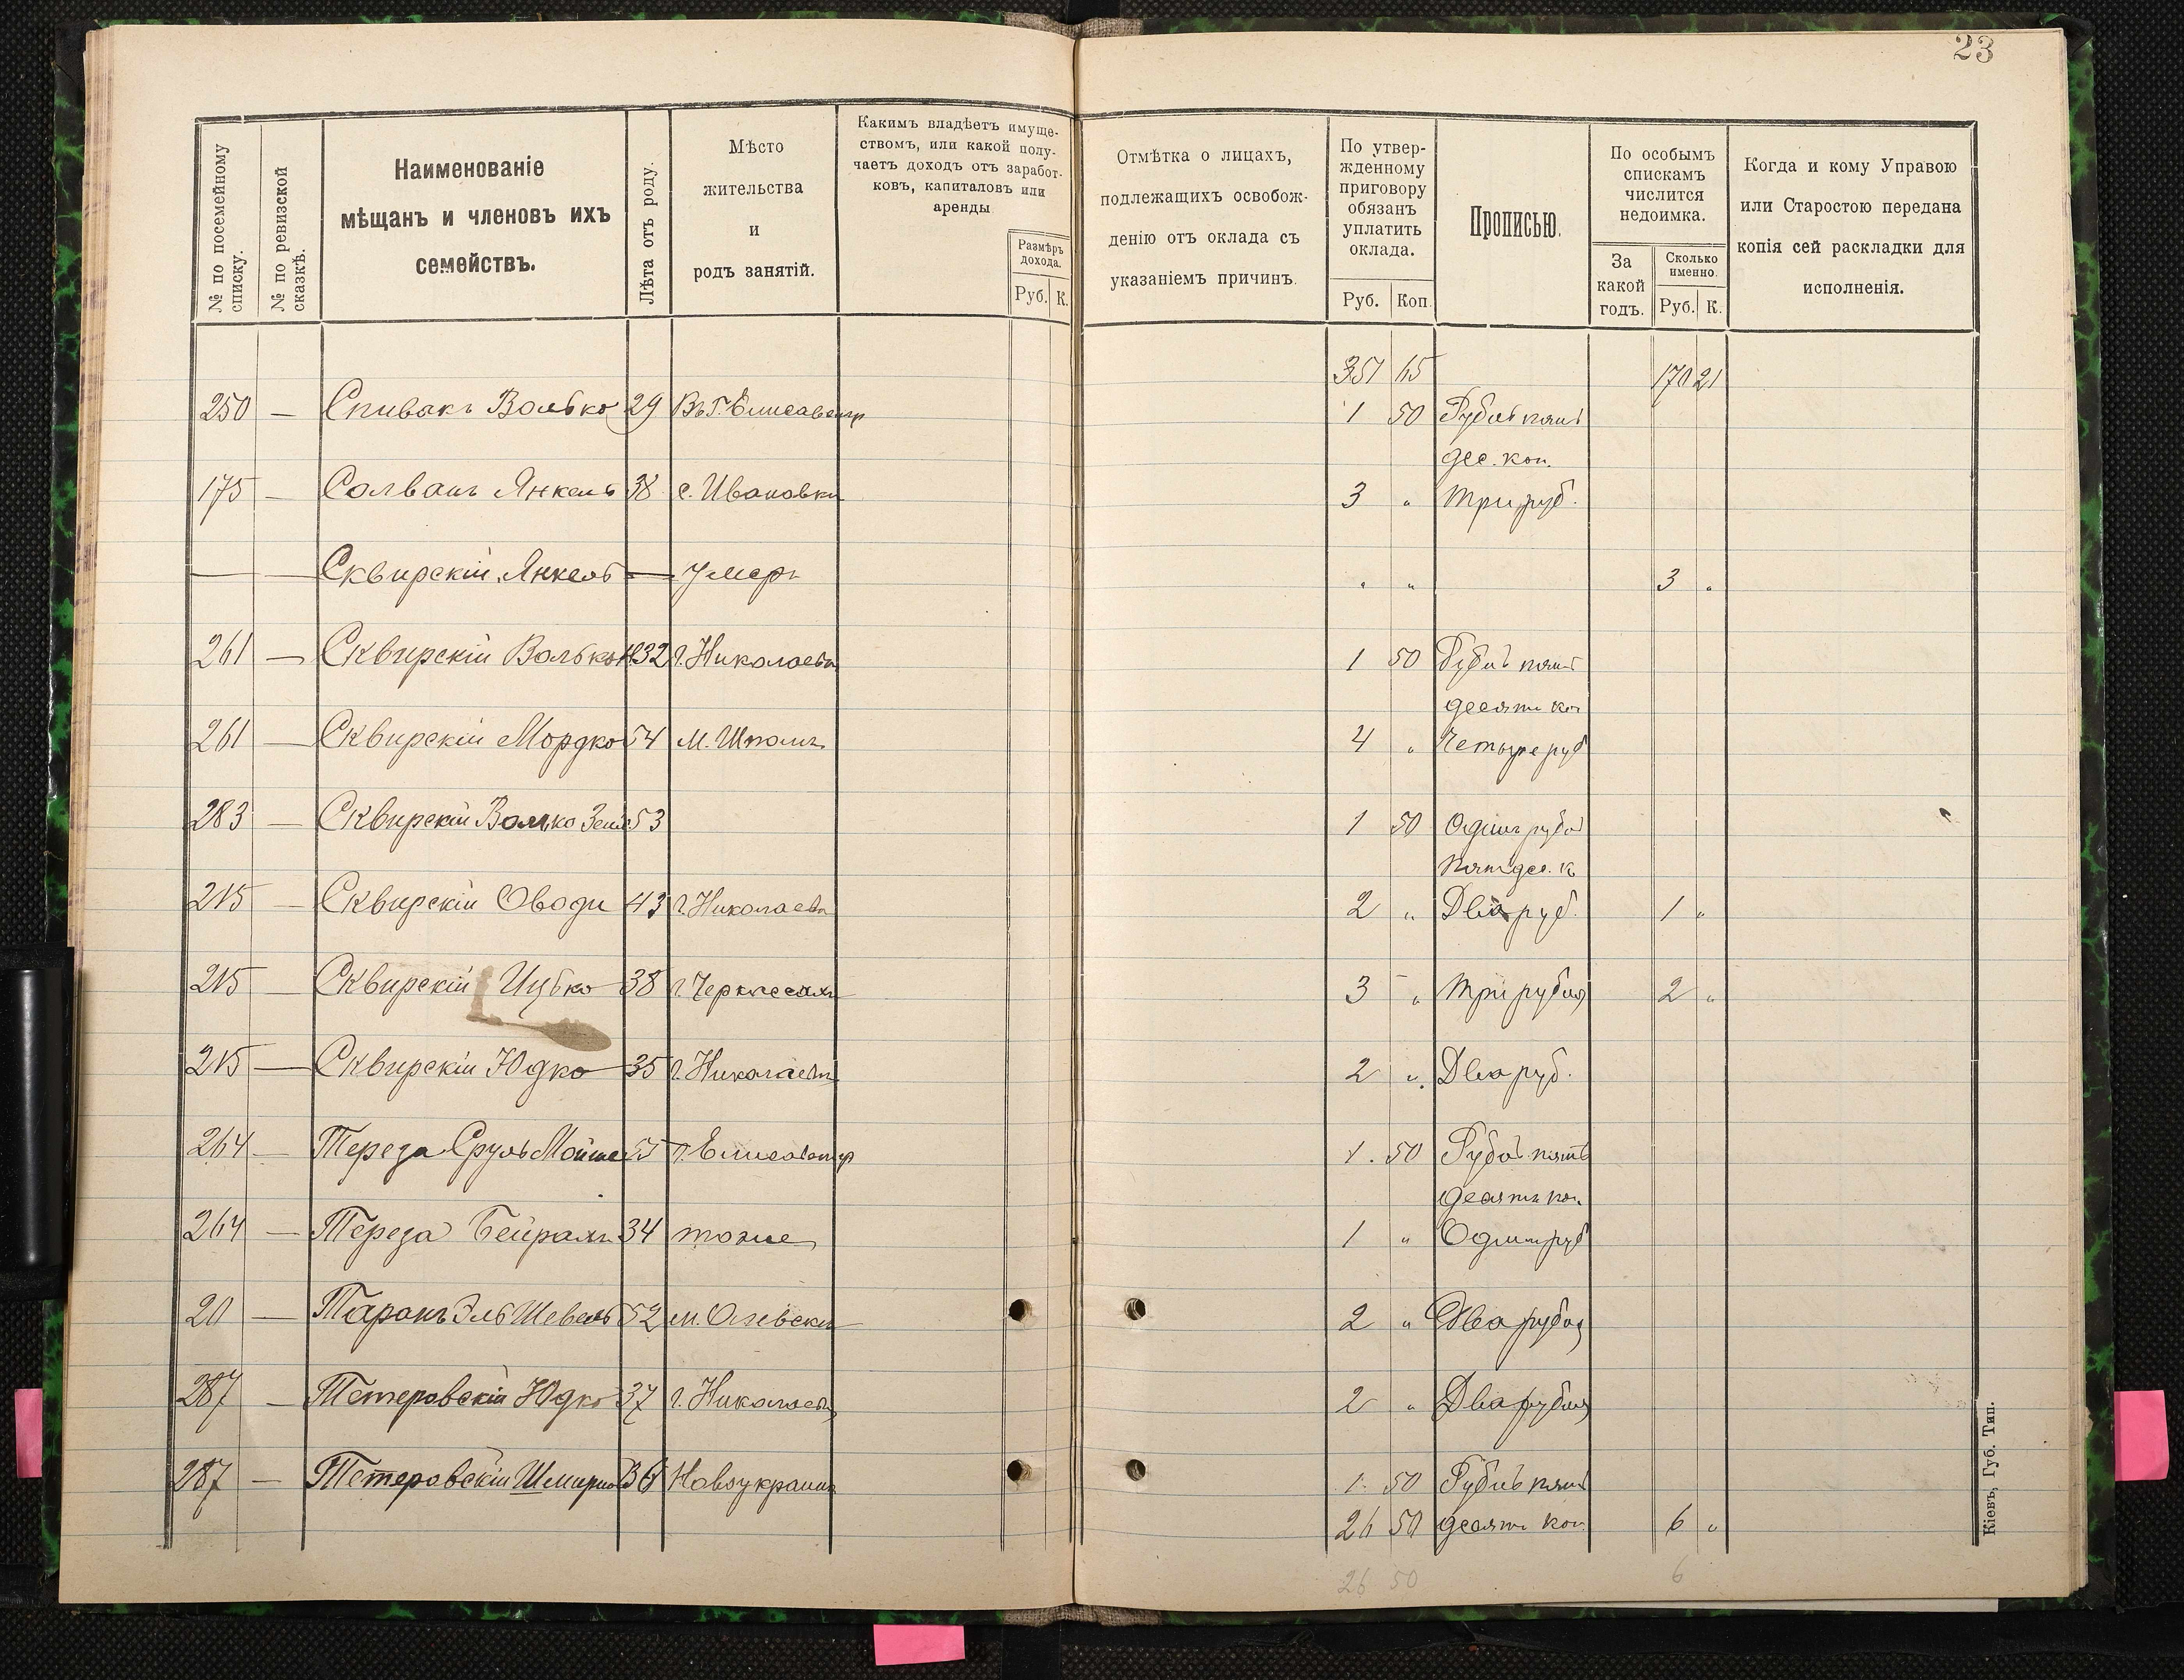 23
№ по посемейному списку.
№ по ревизской сказкѣ.
Наименованіе
мѣщанъ и членовъ ихъ
семействъ.
Лѣта отъ роду.
Мѣсто
жительства
и
родъ занятій.
Какимъ владѣетъ имуще-
ствомъ, или какой полу-
чаетъ доходъ отъ заработ-
ковъ, капиталовъ или
аренды
Размѣръ
дохода.
Руб. К.
Отмѣтка о лицахъ,
подлежащихъ освобож-
денію отъ оклада съ
указаніемъ причинъ.
По утвер-
жденному
приговору
обязанъ
уплатить
оклада.
Руб. Коп.
Прописью.
По особымъ
спискамъ
числится
недоимка.
За
какой
годъ.
Сколько
именно.
Руб. К.
Когда и кому Управою
или Старостою передана
копія сей раскладки для
исполненія.
351 65 170 21
250 — Спивакъ Волько 29 Въ Г. Елисаветгр 1 50 Рубль пять
дес. коп.
175 — Солванъ Янкель 38 с. Ивановки 3 " Три руб.
— — Сквирскій Янкель — Умеръ " " 3 "
261 — Сквирскій Волько 32 г. Николаевъ 1 50 Рубль пять
десятъ коп
261 — Сквирскій Мордко 54 м. Шпола 4 " Четыре руб
283 — Сквирскій Волько 53 1 50 Одинъ рубль
Пятьдес. к
215 — Сквирскій Оводи 43 г. Николаевъ 2 " Два руб. 1 "
215 — Сквирскій Ицько 38 г. Черкассахъ 3 " Три рубля 2 "
215 — Сквирскій Юдко 35 г. Николаевъ 2 " Два руб.
264 — Тереза Сруль Мойше 55 г. Елисаветгр 1. 50 Рубль пять
десятъ коп.
264 — Тереза Бейрахъ 34 тоже 1 " Одинъ руб
20 — Таранъ Эль Шевель 52 м. Олевски 2 " Два рубля
287 — Тетеровскій Юдко 37 г. Николаевъ 2 " Два рубля
287 — Тетеровскій Шмирно 36 Новоукраин 1. 50 Рубль пять
26 50 десятъ коп. 6 "
26 50 6
Кіевъ, Губ. Тип.